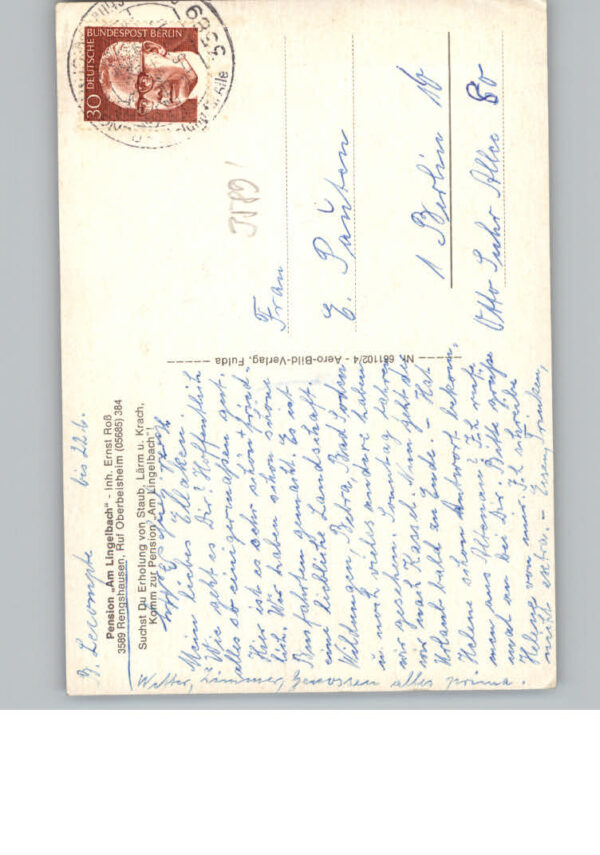 G. Lecompte bis 22.6.
Pension „Am Lingelbach" - Inh. Ernst Roß
3589 Rengshausen, Ruf Oberbeisheim (05685) 384
Suchst Du Erholung von Staub, Lärm u. Krach,
Komm zur Pension „Am Lingelbach"!
Mein liebes Elleken.
Wie geht es Dir? Hoffentlich
alles so einigermaßen gut.
Hier ist es sehr schön fried-
lich. Wir haben schon schöne
Ausfahrten gemacht. Es ist
eine liebliche Landschaft.
Wildungen, Bebra, Bad Soden
u. noch vieles andere haben
wir gesehen. Sonntag fahren
wir nach Kassel. Dann geht der
Urlaub bald zu Ende. - Hat
Helene schon Antwort bekom-
men aus Altenau? Ich rufe
mal an bei Dir. Bitte grüße
Helene von mir. Ich schreibe
nicht extra. - Essen, Trinken,
Wetter, Zimmer, Genossen alles prima.
Nr. 681102/4 - Aero-Bild-Verlag, Fulda
DEUTSCHE BUNDESPOST BERLIN
30
3589
Frau
E. Päuten
1 Berlin 10
Otto Suhr Allee 80